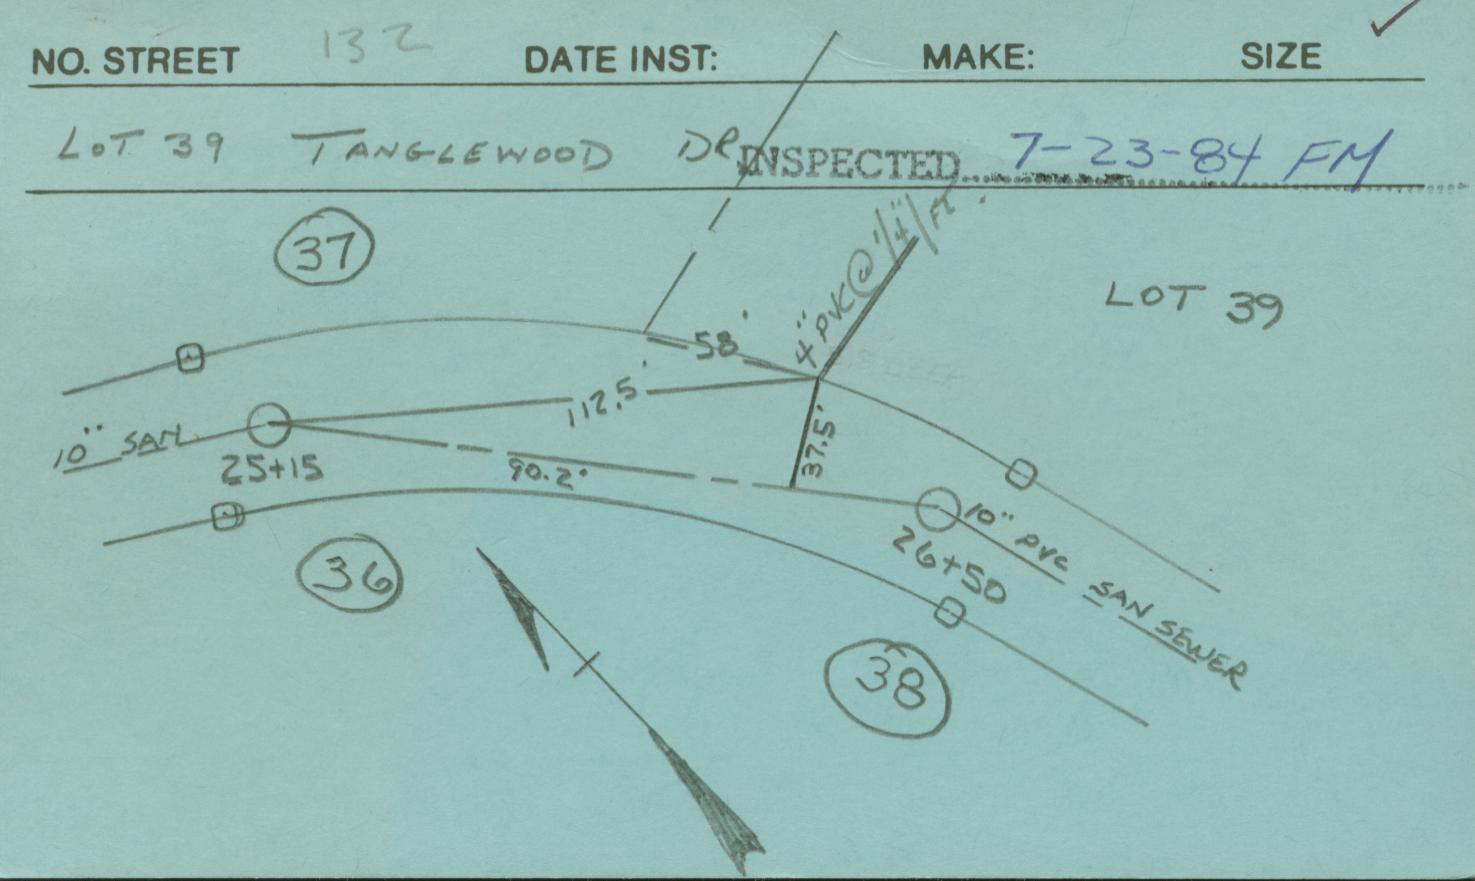 NO. STREET 132 DATE INST: MAKE: SIZE
LOT 39 TANGLEWOOD DR. INSPECTED 7-23-84 FM
37
4" PVC @ 1/4"/FT.
LOT 39
58'
112.5'
10" SAN.
25+15
90.2'
37.5'
10" PVC SAN SEWER
26+50
36
38